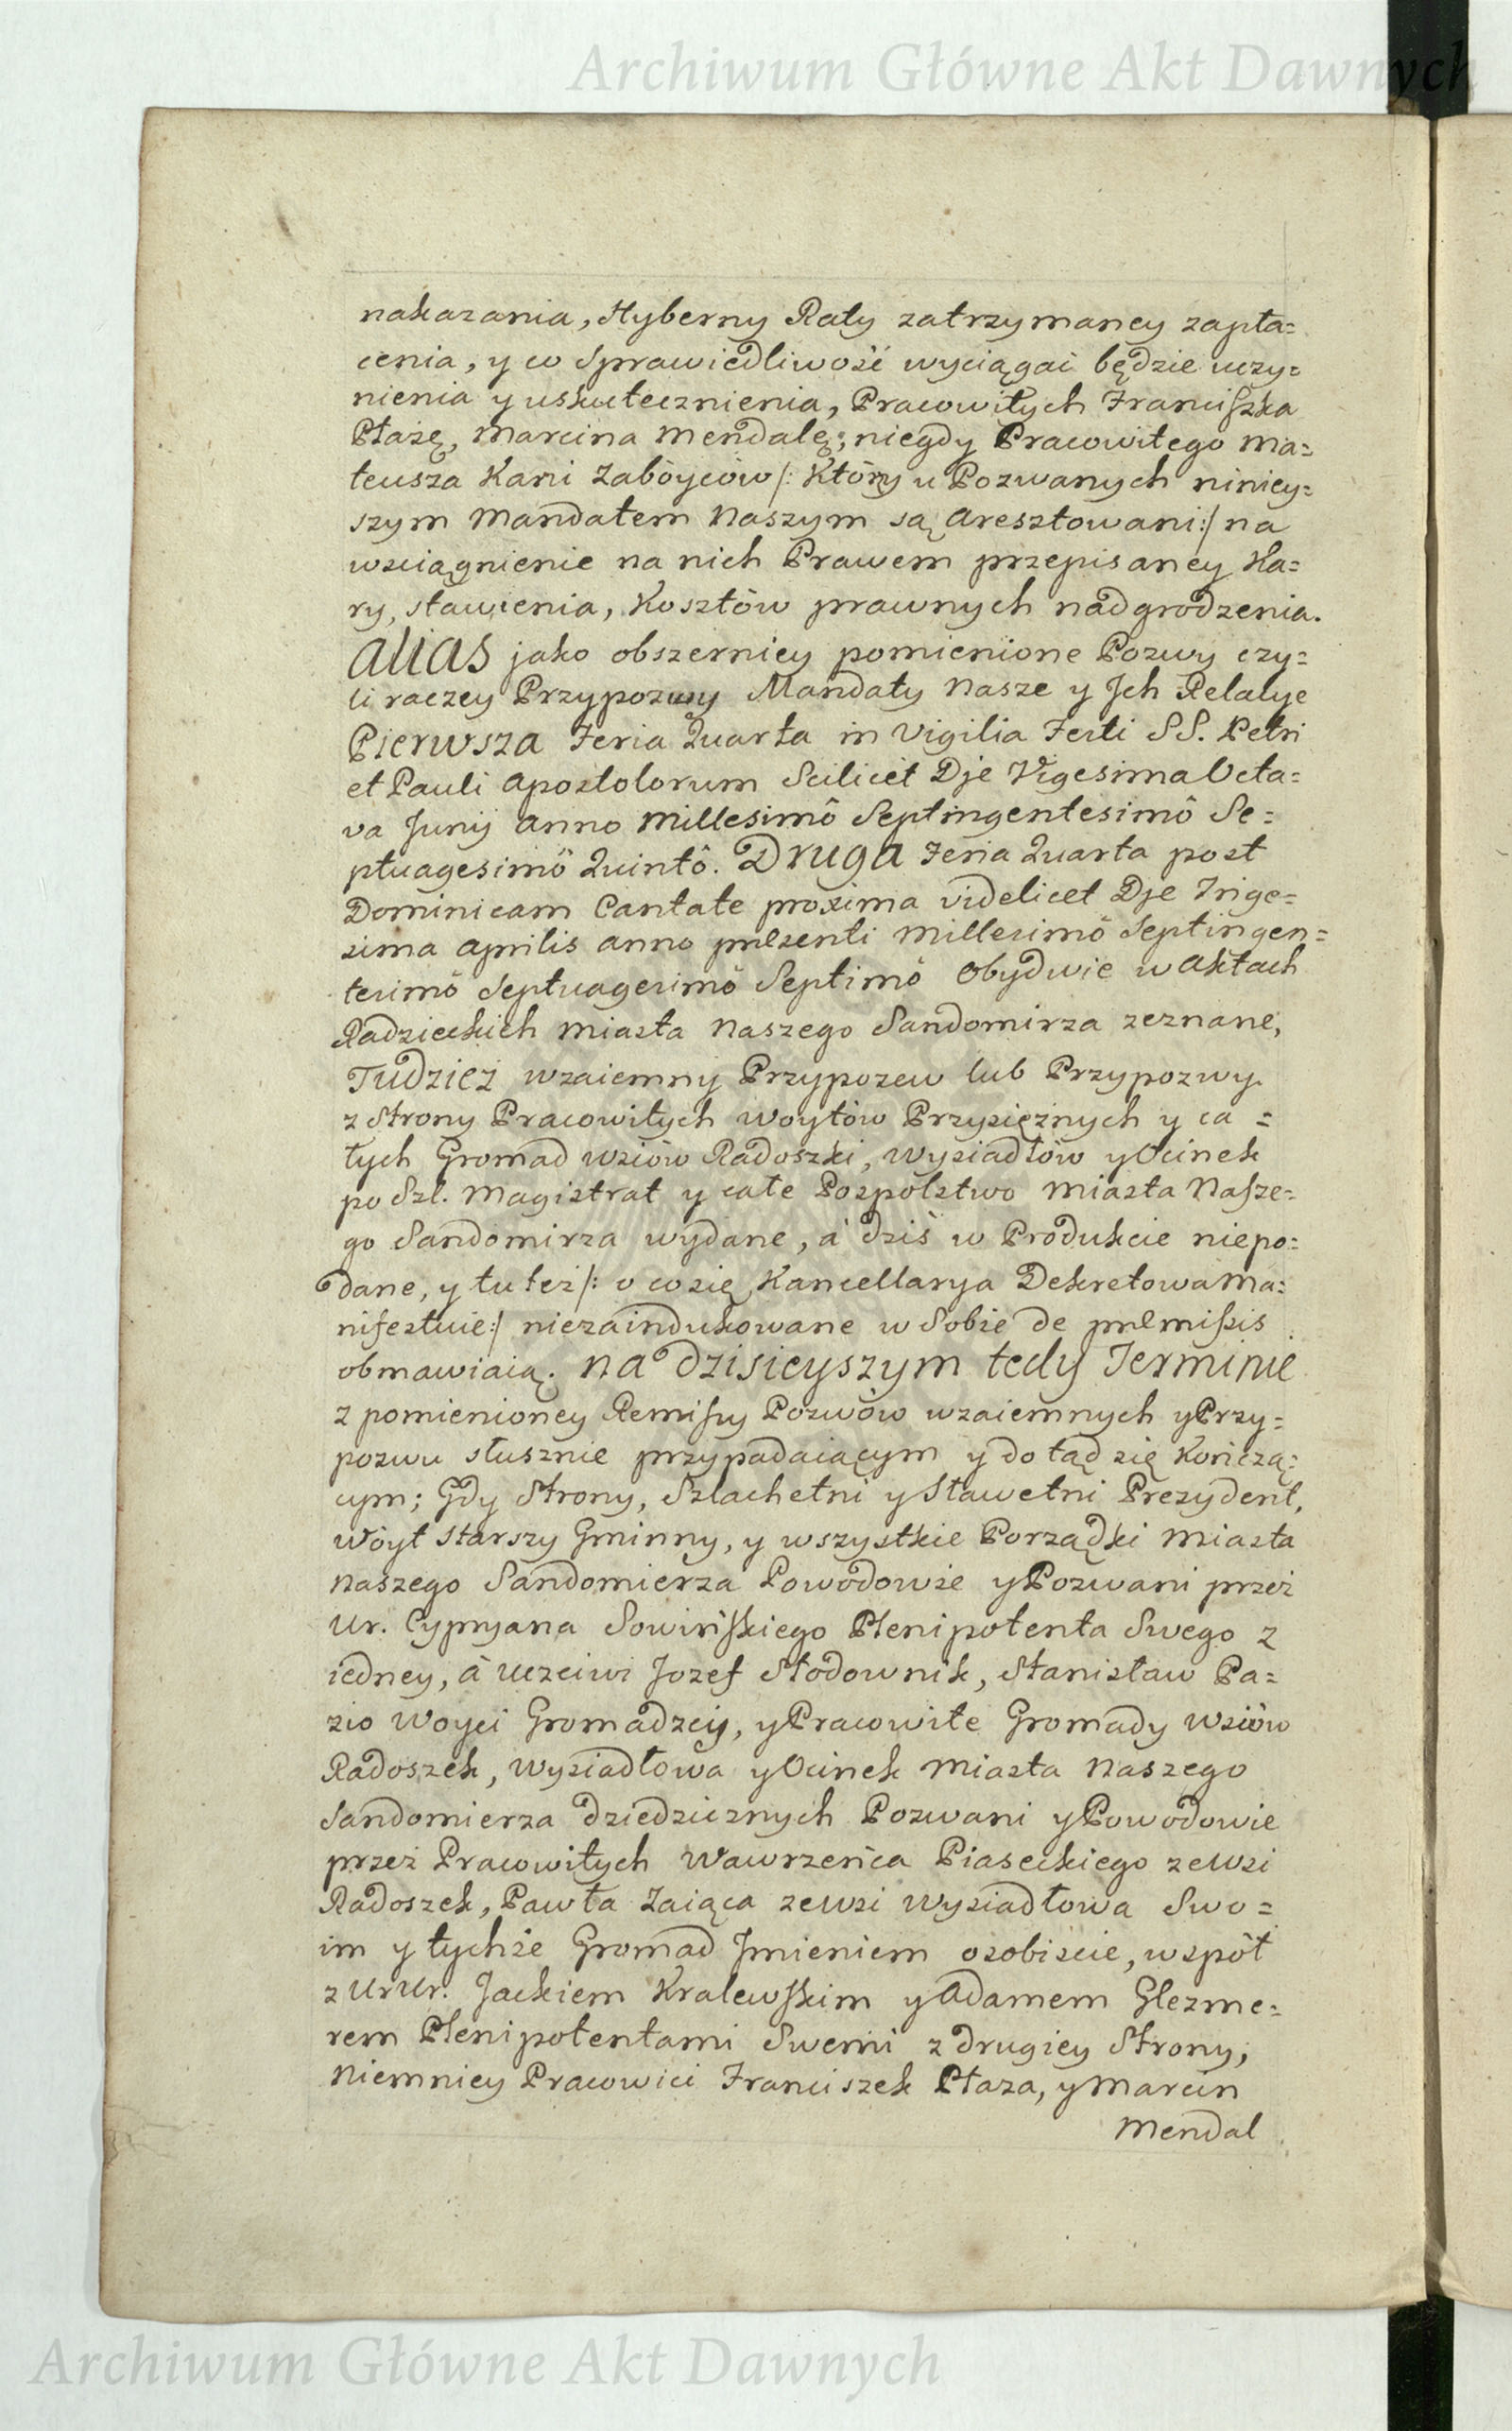 Archiwum Główne Akt Dawnych
nakazania, Hyberny Raty zatrzymaney zapła=
cenia, y co Sprawiedliwość wyciągać będzie uczy=
nienia y uskutecznienia, Pracowitych Franciszka
Płazę, Marcina Mendalę; niegdy Pracowitego Ma=
teusza Kani Zaboyców /: Którzy u Pozwanych niniey=
szym Mandatem Naszym są Aresztowani :/ na
wsciągnienie na nich Prawem przepisaney Ka=
ry, stawienia, Kosztów prawnych nadgrodzenia.
Alias jako obszerniey pomienione Pozwy czy=
li raczey Przypozwy Mandaty Nasze y Jch Relatye
Pierwsza Feria Quarta in Vigilia Festi SS. Petri
et Pauli Apostolorum Scilicet Dje Vigesima Octa=
va Junij Anno Millesimô Septingentesimô Se=
ptuagesimô Quintô. Druga Feria Quarta post
Dominicam Cantate proxima videlicet Dje Trige=
sima Aprilis Anno pnlsenti Millesimô Septingen=
tesimô Septuagesimô Septimô Obydwie w Aktach
Radzieckich Miasta Naszego Sandomirza zeznane,
Tudziez wzaiemny Przypozew lub Przypozwy
z Strony Pracowitych Woytów Przysiężnych y ca=
łych Gromad wsiów Radoszki, Wysiadłów y Ocinek
po Szl. Magistrat y całe Pospolstwo Miasta Nasze=
go Sandomirza wydane, á dziś w Produkcie niepo=
dane, y tu też /: o co się Kancellarya Dekretowa Ma=
nifestuie :/ niezaindukowane w Sobie de pnlmissis
obmawiaią. Na dzisieyszym tedy Terminie
z pomienioney Remissy Pozwów wzaiemnych y Przy=
pozwu słusznie przypadaiącym y do tąd się Kończą=
cym; Gdy Strony, Szlachetni y Sławetni Prezydent,
Wóyt Starszy Gminny, y wszystkie Porządki Miasta
Naszego Sandomierza Powodowie y Pozwani przez
Ur. Cypryana Sowińskiego Plenipotenta Swego z
iedney, á Uczciwi Jozef Słodownik, Stanisław Pa=
zio Woyci Gromadzcy, y Pracowite Gromady Wsiów
Radoszek, Wysiadłowa y Ocinek Miasta Naszego
Sandomierza dziedzicznych Pozwani y Powodowie
przez Pracowitych Wawrzeńca Piaseckiego ze Wsi
Radoszek, Pawła Zaiąca ze Wsi Wysiadłowa Swo=
im y tychże Gromad Jmieniem osobiscie, współ
z Ur Ur. Jackiem Kralewskim y Adamem Glezme=
rem Plenipotentami Swemi z drugiey Strony,
Niemniey Pracowici Franciszek Płaza, y Marcin
Mendal
Archiwum Główne Akt Dawnych